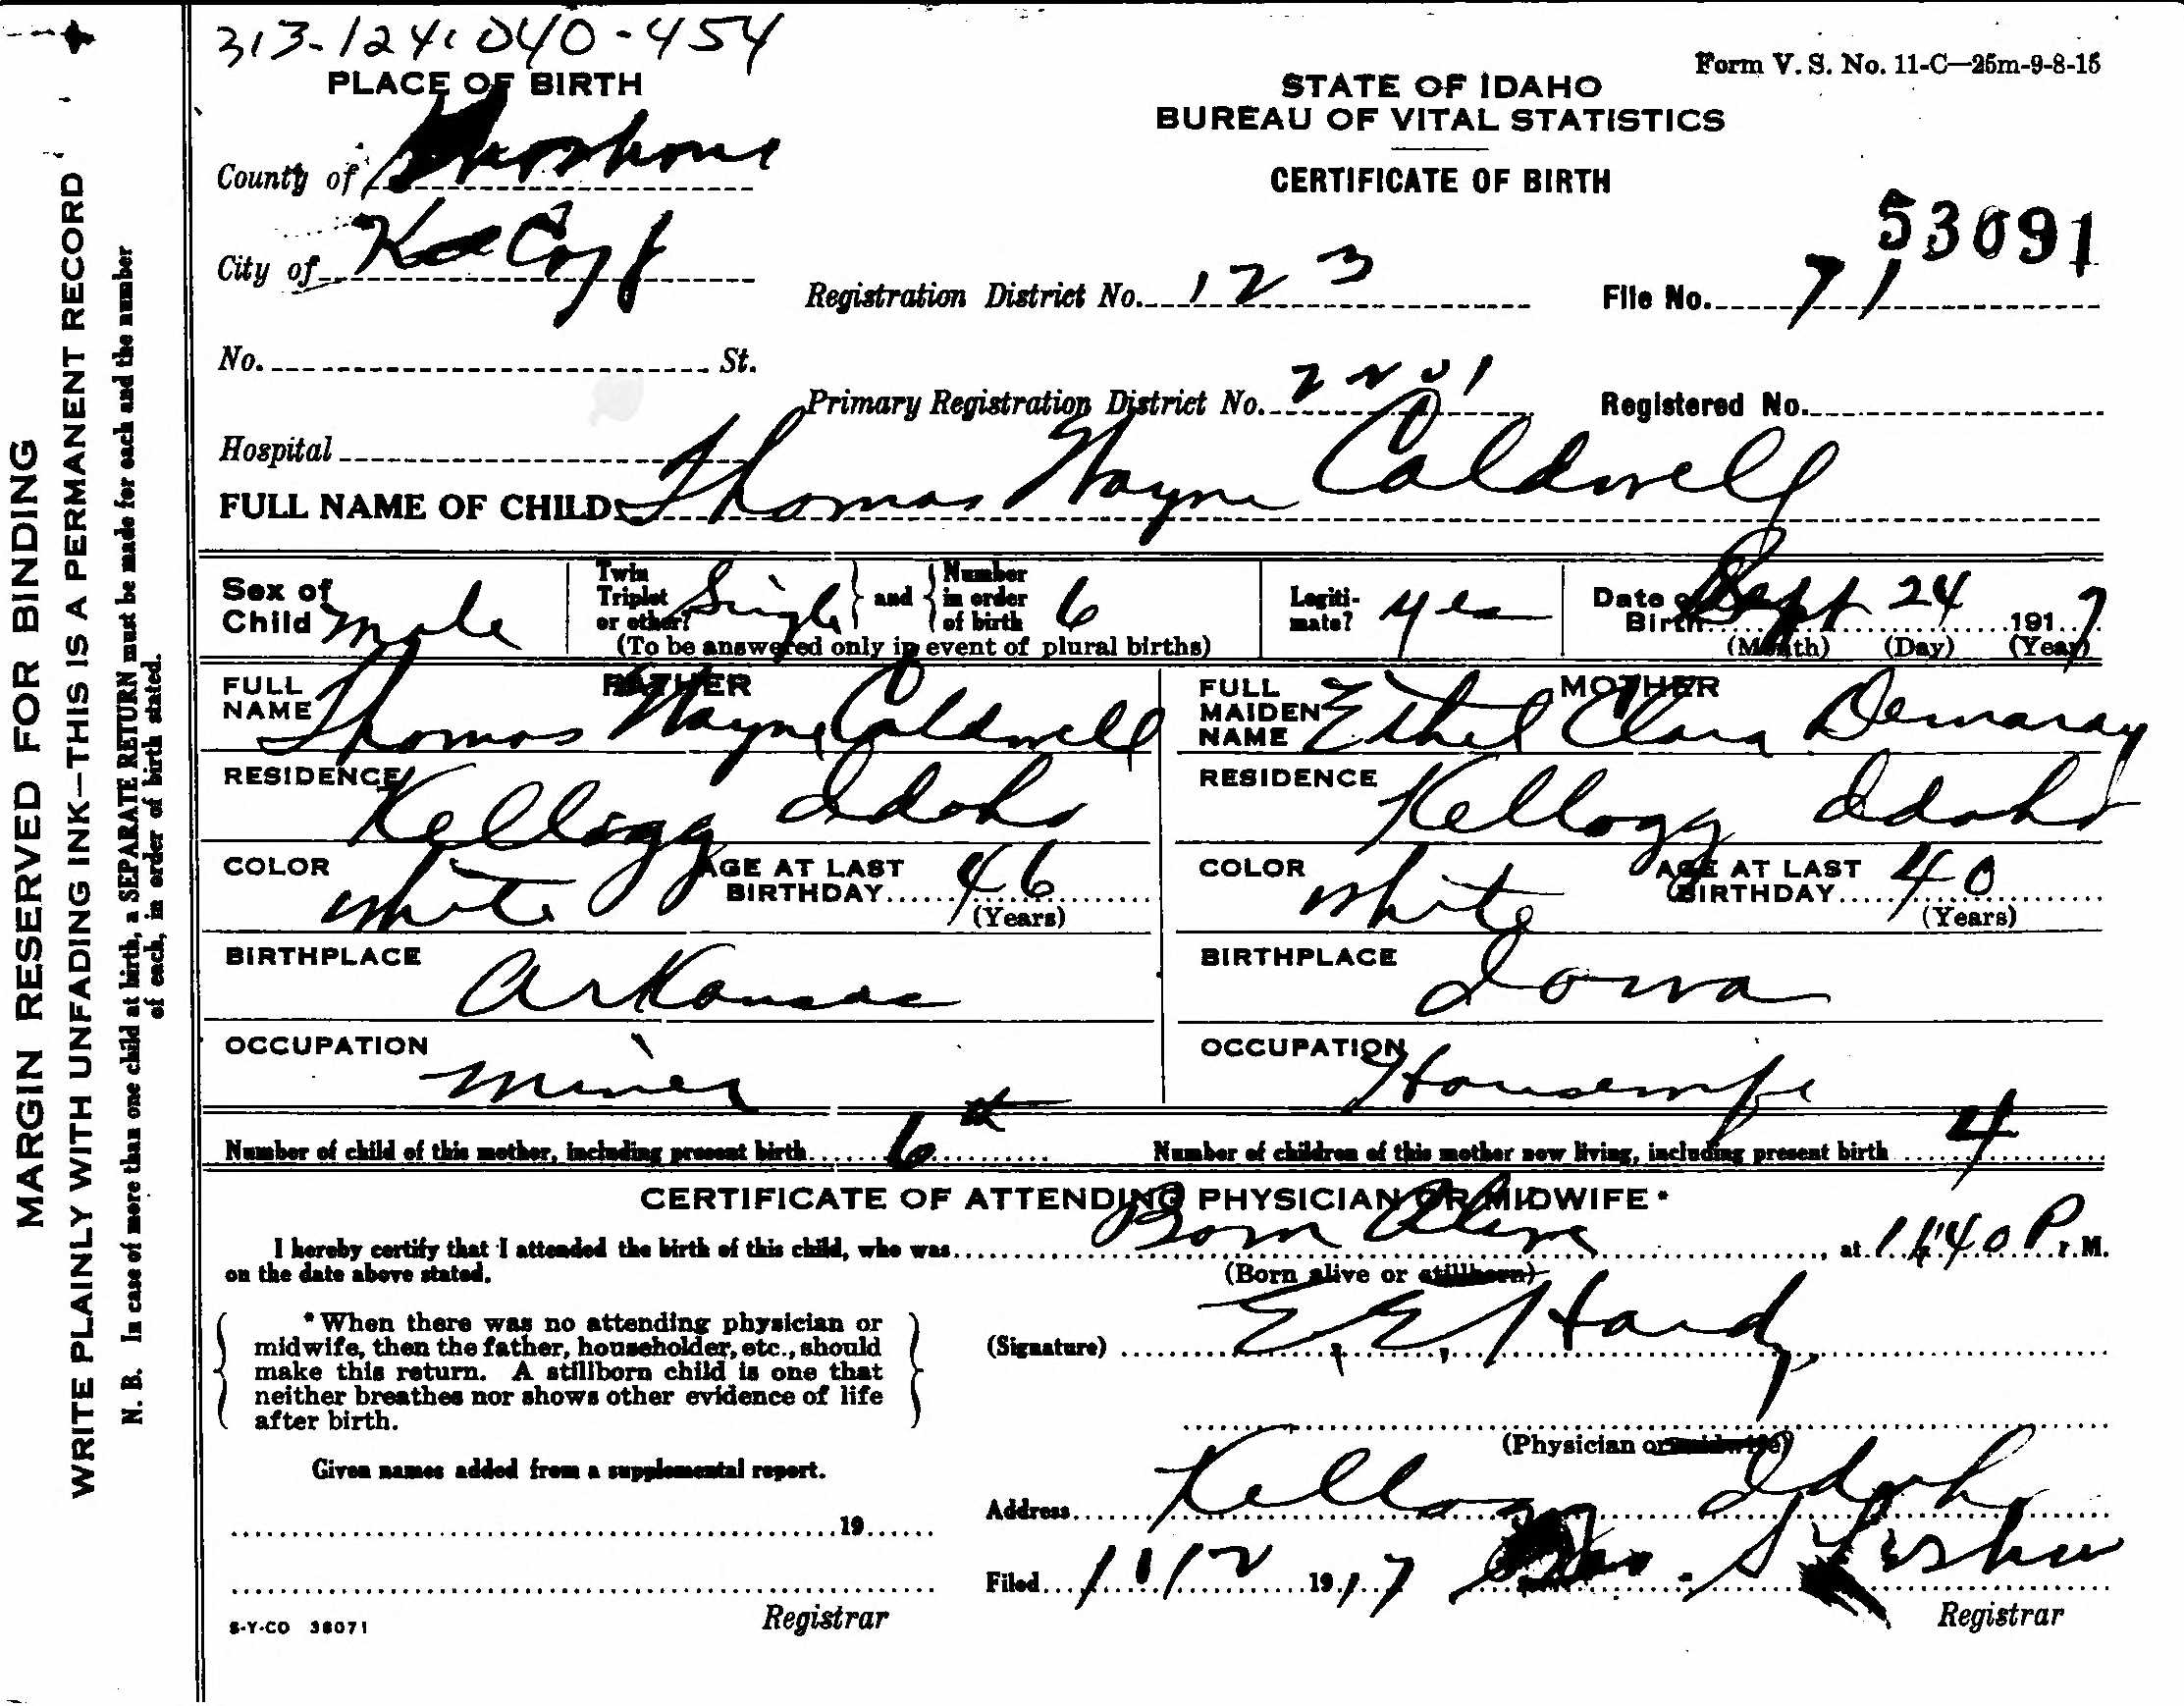 313-124-040-454
Form V. S. No. 11-C—25m-9-8-15
PLACE OF BIRTH
STATE OF IDAHO
BUREAU OF VITAL STATISTICS
CERTIFICATE OF BIRTH
County of Shoshone
53091
City of
Registration District No. 123
File No. 71
No. St.
Primary Registration District No. 2201
Registered No.
Hospital
FULL NAME OF CHILD Thomas Wayne Caldwell
Sex of Child male
Twin Triplet or other? Single and Number in order of birth 6
(To be answered only in event of plural births)
Legitimate? yes
Date of Birth Sept 24 1917
(Month) (Day) (Year)
FATHER
FULL NAME Thomas Wayne Caldwell
RESIDENCE Kellogg Idaho
COLOR white AGE AT LAST BIRTHDAY 46
(Years)
BIRTHPLACE Arkansas
OCCUPATION miner
MOTHER
FULL MAIDEN NAME Ethel Clara Demaray
RESIDENCE Kellogg Idaho
COLOR white AGE AT LAST BIRTHDAY 40
(Years)
BIRTHPLACE Iowa
OCCUPATION Housewife
Number of child of this mother, including present birth 6th
Number of children of this mother now living, including present birth 4
CERTIFICATE OF ATTENDING PHYSICIAN OR MIDWIFE*
I hereby certify that I attended the birth of this child, who was Born Alive, at P. M.
on the date above stated.
(Born alive or stillborn)
*When there was no attending physician or
midwife, then the father, householder, etc., should
make this return. A stillborn child is one that
neither breathes nor shows other evidence of life
after birth.
(Signature) E. E. Hardy
(Physician or midwife)
Given names added from a supplemental report.
19
Address Kellogg Idaho
Filed 1917
Registrar
Registrar
S-Y-CO 38071
MARGIN RESERVED FOR BINDING
WRITE PLAINLY WITH UNFADING INK—THIS IS A PERMANENT RECORD
N. B. In case of more than one child at birth, a SEPARATE RETURN must be made for each and the number
of each, in order of birth stated.